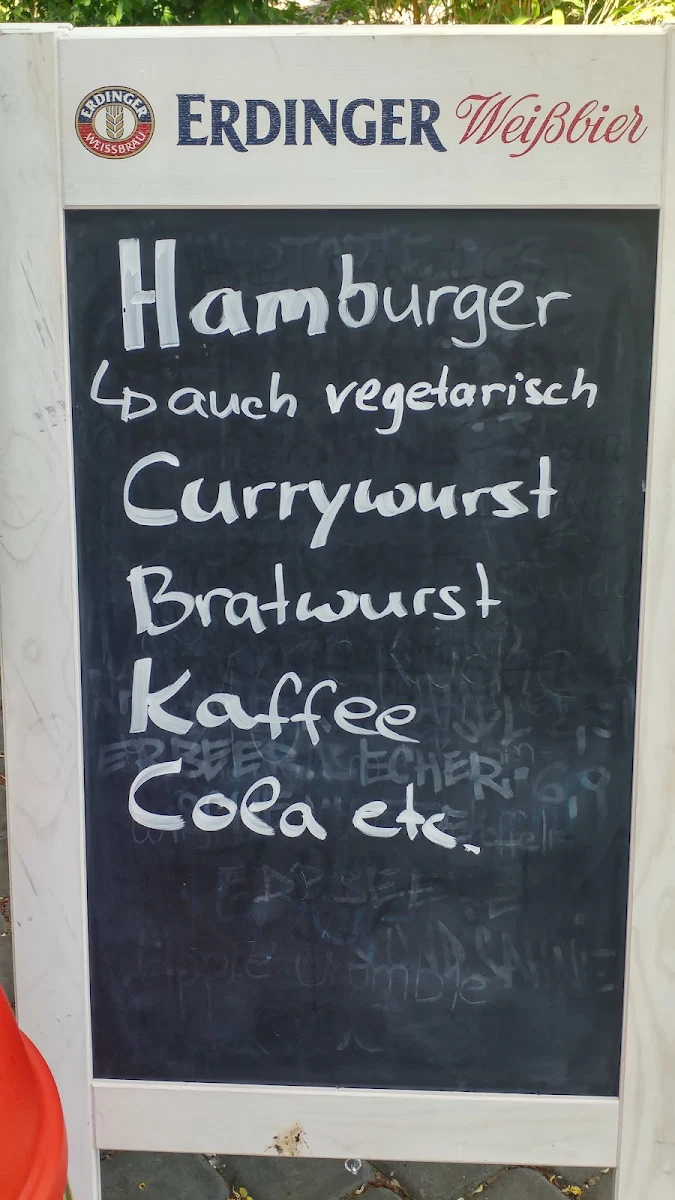 ERDINGER WEISSBRÄU
ERDINGER Weißbier
Hamburger
↳ auch vegetarisch
Currywurst
Bratwurst
Kaffee
ERDBEERBECHER
Cola etc.
Apple crumble